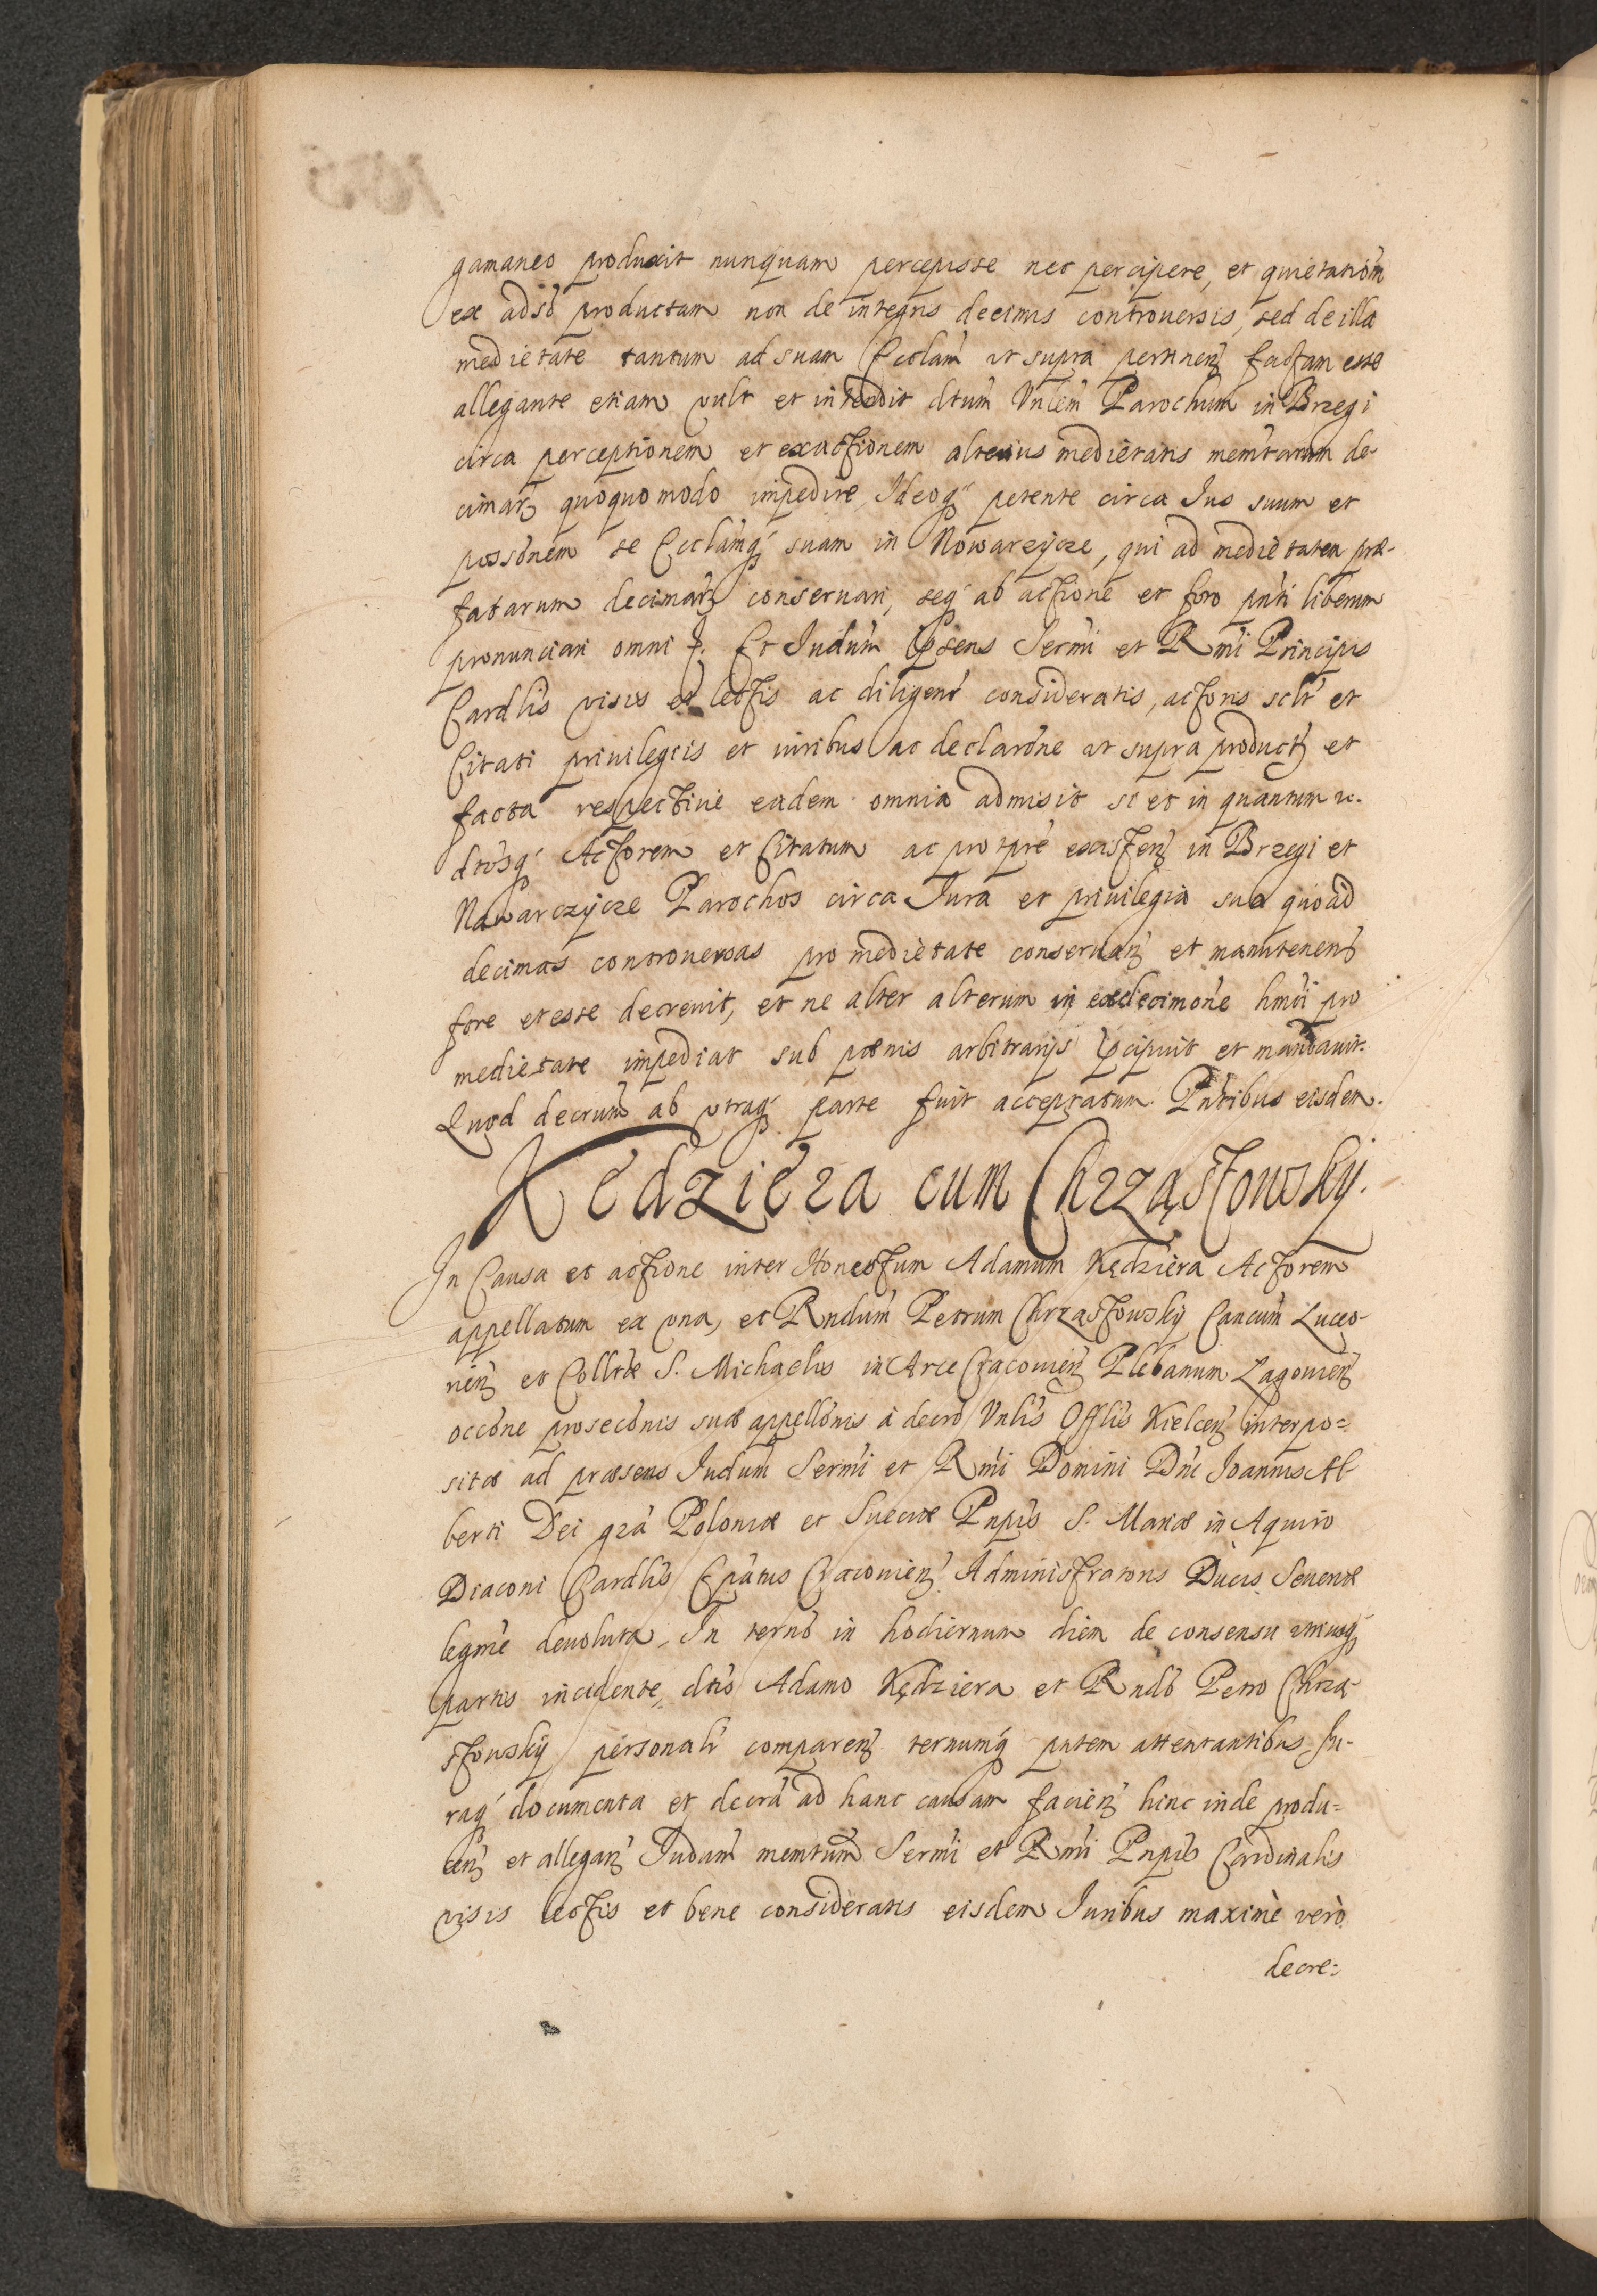 gamaneo produxit nunquam percepisse nec percipere, et quietatiom̃
ex adso productam non de integris decimis controuersis, sed de illa
medietate tantum ad suam Ecclam̃ ut supra pertinen̄ factam esse
allegante etiam vult et intendit dtum̃ Vnlem̃ Parochum in Brzegi
circa perceptionem et exactionem alterius medietatis memtarum de-
cimar̄ quoquomodo impedire, Ideoq́ petente circa Ius suum et
possonem̃ se Ecclam̃q́ suam in Nowarzÿcze, qui ad medietatem præ-
fatarum decimar̄ conseruari, seq́ ab actione et foro pnti liberum
pronunciari omni Et Iudum̃ psens Sermi et Rmi Principis
Cardlis visis et lectis ac diligenr̃ consideratis, actoris sclr̃ et
Citati priuilegiis et iuribus ac declarõne ut supra product̄ et
facta respectiue eadem omnia admisit si et in quantum
dtosq́ Actorem et Citatum ac pro tpre existen̄ in Brzegi et
Nawarczÿcze Parochos circa Iura et priuilegia sua quoad
decimas controuersas pro medietate conseruan̄ et manutenen̄
fore et esse decreuit, et ne alter alterum in exdecimoñe hmoi pro
medietate impediat sub pœnis arbitrarÿs pcipuit et mandauit.
Quod decrum̃ ab utraq́ parte fuit acceptatum. Pntibus eisdem.
Kędziera cum Chrząstowskÿ.
In Causa et actione inter Honestum Adamum Kędziera Actorem
appellatum ex una, et Rndum̃ Petrum Chrząstowskÿ Cancum̃ Luceo-
rien̄ et Colltæ S. Michaelis in Arce Cracouien̄ Plebanum Lagouien̄
occõne prosecõnis suæ appellõnis à decro Vnlis Offlis Kielcen̄ interpo=
sitæ ad præsens Iudum̃ Sermi et Rmi Domini Dni Ioannis Al-
berti Dei gra Poloniæ et Sueciæ Pnpis S. Mariæ in Aquiro
Diaconi Cardlis Epatus Cracouien̄ Administratoris Ducis Seueriæ
legme deuoluta, In termo in hodiernum diem de consensu utriusq́
partis incidente, dtis Adamo Kędziera et Rndo Petro Chrzą-
stowskÿ personalr̃ comparen̄ termumq́ pntem attentantibus Iu-
raq́ documenta et decra ad hanc causam facien̄ hinc inde produ=
cen̄ et allegan̄ Iudum̃ memtum̃ Sermi et Rmi Pnpis Cardinalis
visis lectis et bene consideratis eisdem Iuribus maximè verò
decre=